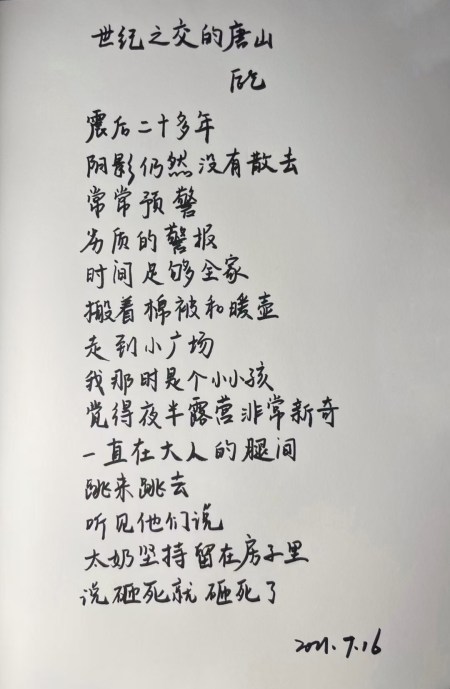 世纪之交的唐山
后乞
震后二十多年
阴影仍然没有散去
常常预警
劣质的警报
时间足够全家
搬着棉被和暖壶
走到小广场
我那时是个小小孩
觉得夜半露营非常新奇
一直在大人的腿间
跳来跳去
听见他们说
太奶坚持留在房子里
说砸死就砸死了
2021.7.16